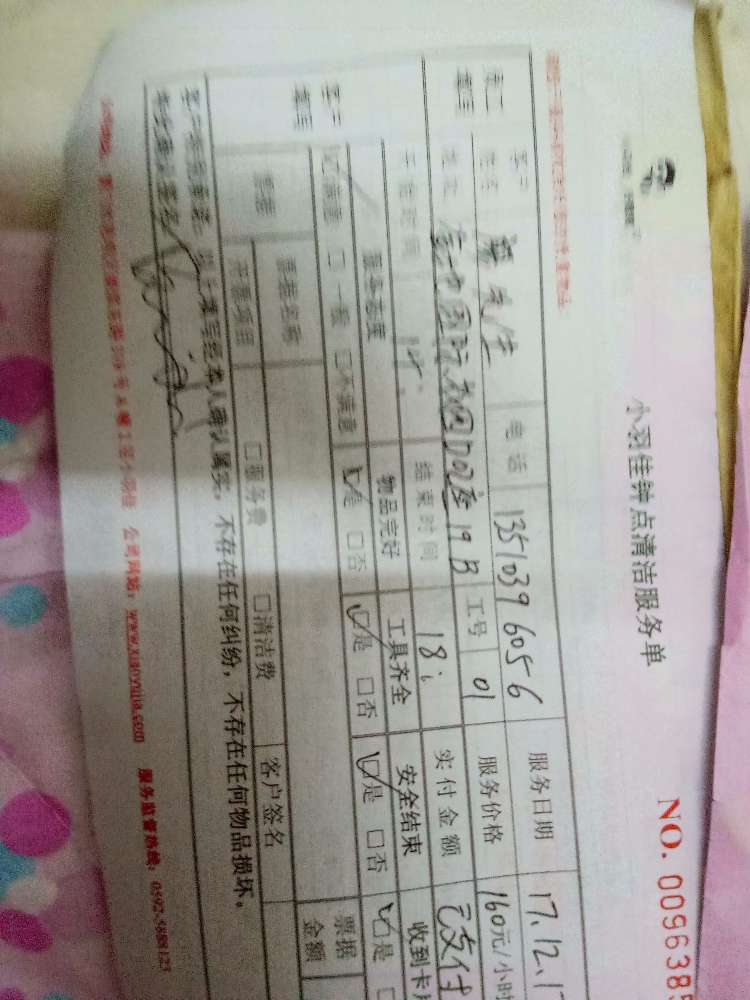 小羽佳钟点清洁服务单
NO. 0096385
员工填写 客户姓名 先生 电话 13510396056 服务日期 17.12.1
地址 国际花园D02座19B 工号 01 服务价格 160元/小时
开始时间 14: 结束时间 18: 实付金额 已支付
客户填写 服务态度 物品完好 工具齐全 安全结束 收到卡片
☑满意 □一般 □不满意 ☑是 □否 ☑是 □否 ☑是 □否 ☑是
票据 票据名称 客户签名 票据金额
开票项目 □服务费 □清洁费
以上填写经本人确认属实，不存在任何纠纷，不存在任何物品损坏。
公司网站：www.xiaoyujia.com 服务监督热线：0592-5888123